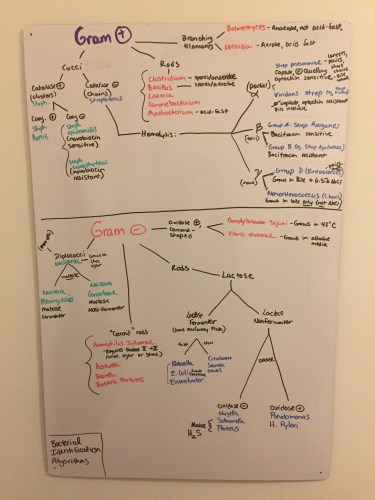 Gram +
Branching filaments
Actinomyces - Anaerobe, not acid-fast
Nocardia - Aerobe, acid fast
Cocci
Rods
Catalase + (clusters)
Staph
Catalase - (chains)
Streptococcus
Clostridium - spores/anaerobe
Bacillus - spores/aerobe
Listeria
Corynebacterium
Mycobacterium - acid-fast
Coag. +
Staph
Aureus
Coag -
Staph epidermidis
(novobiocin sensitive)
Staph Saprophyticus
(novobiocin resistant)
Hemolysis:
α
(partial)
Strep pneumoniae -
capsule, + Quellung
optochin sensitive
Viridans strep
no capsule, optochin resistant
Bile insoluble
β
Group A (Strep Pyogenes)
Bacitracin sensitive
Group B (Strep Agalactiae)
Bacitracin resistant
γ
Group D (Enterococcus)
Grows in Bile + 6.5% NaCl
NonEnterococcus (S. bovis)
Grows in bile only (not NaCl)
Gram -
oxidase +
comma-shaped
Campylobacter Jejuni - Grows in 42°C
Vibrio cholerae - Grows in alkaline media
Diplococci
Neisseria
maltose
Neisseria
Meningitidis
maltose
fermenter
Neisseria
Gonorrhoeae
maltose
Non-fermenter
Rods
Lactose
"Coccoid" rods
Haemophilus Influenzae
Pasteurella
Brucella
Bordetella Pertussis
Lactose
Fermenter
Fast
Slow
Klebsiella
E. Coli
Enterobacter
Citrobacter
Serratia
Lactose
Nonfermenter
oxidase
oxidase -
Shigella
Salmonella
Proteus
Make H₂S
oxidase +
Pseudomonas
H. Pylori
Bacterial
Identification
Algorithms